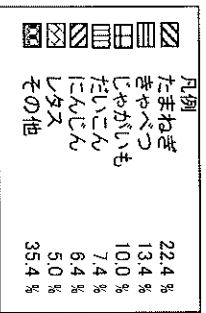 凡例
たまねぎ 22.4 %
きゃべつ 13.4 %
じゃがいも 10.0 %
だいこん 7.4 %
にんじん 6.4 %
レタス 5.0 %
その他 35.4 %